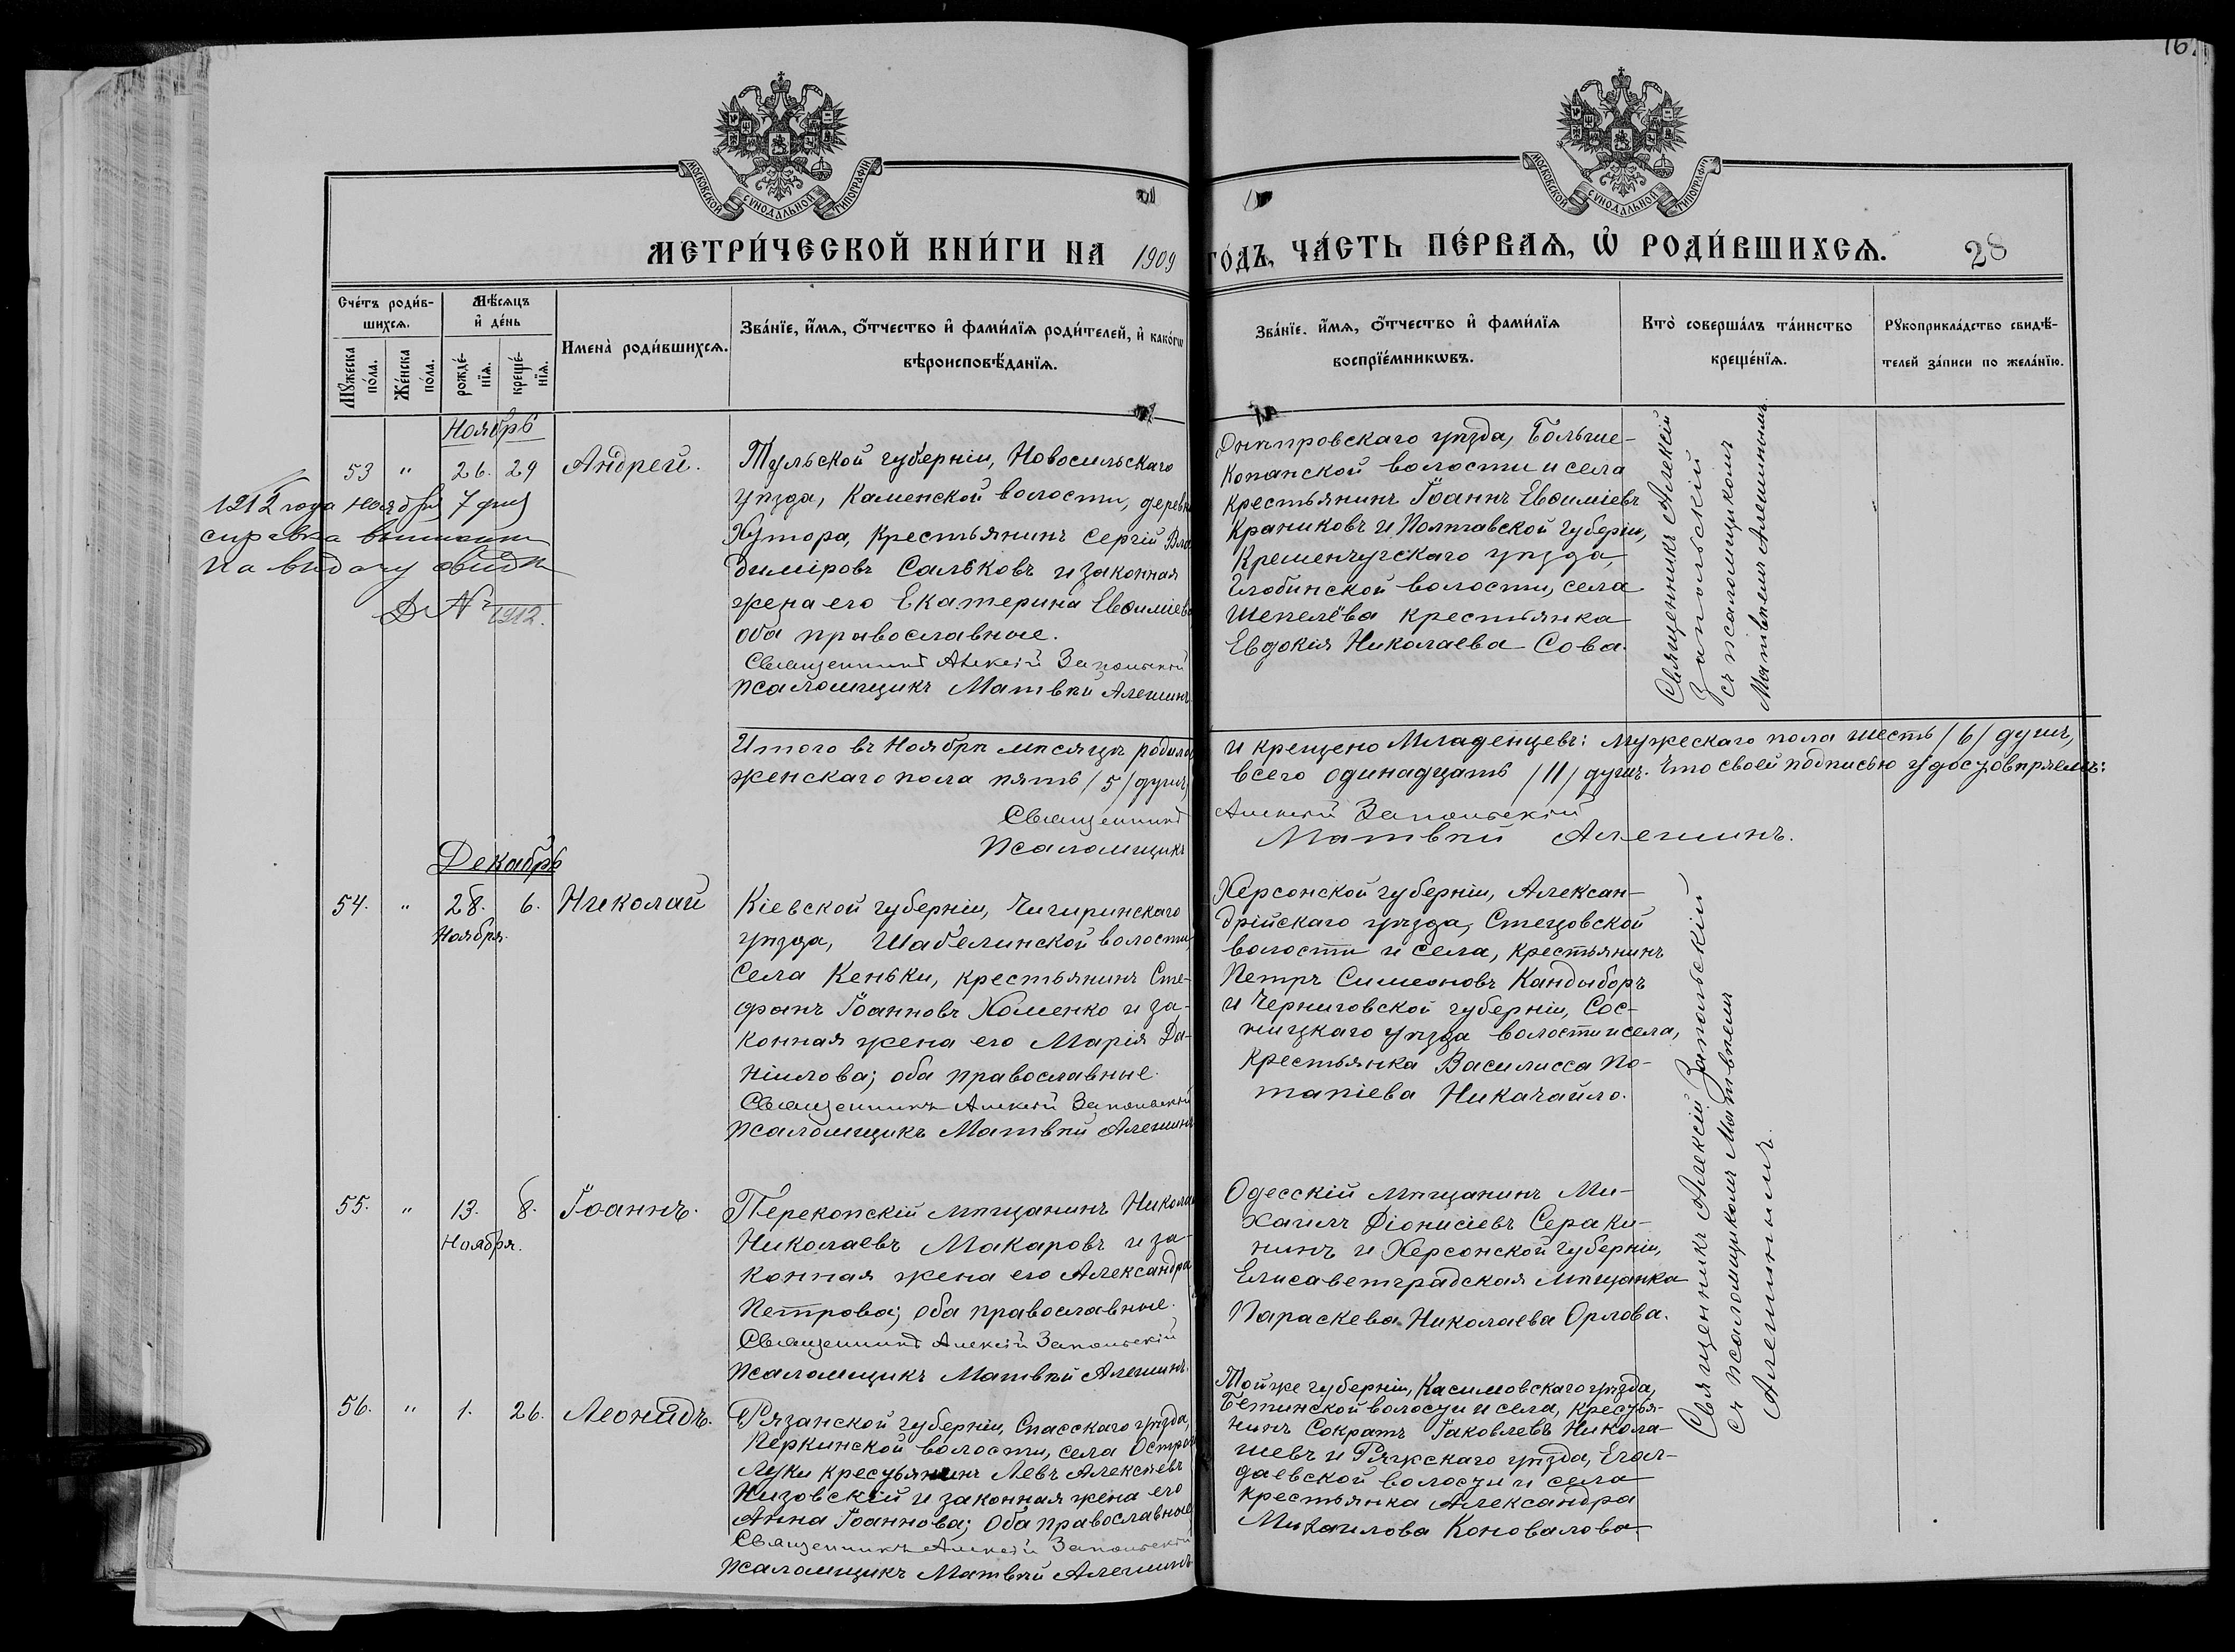 162
МОСКОВСКОЙ СѴНОДАЛЬНОЙ ТИПОГРАФІИ
МОСКОВСКОЙ СѴНОДАЛЬНОЙ ТИПОГРАФІИ
МЕТРИ́ЧЕСКОЙ КНИ́ГИ НА 1909
ГО́ДЪ, ЧА́СТЬ ПЕ́РВАѦ, Ѡ҆ РОДИ́ВШИХСѦ. 28
Сче́тъ роди́в-
шихсѧ.
Мꙋ́жеска по́ла.
Же́нска по́ла.
Мѣ́сѧцъ
и҆ де́нь
рожде́-
нїѧ.
креще́-
нїѧ.
Имена̀ роди́вшихсѧ.
Зва́нїе, и҆́мѧ, ѻ҆́тчество и҆ фами́лїѧ роди́телей, и҆ како́гѡ
вѣроисповѣ́данїѧ.
Зва́нїе. и҆́мѧ, ѻ҆́тчество и҆ фами́лїѧ
воспрїе́мникѡвъ.
Кто̀ соверша́лъ та́инство
креще́нїѧ.
Рꙋкоприкла́дство свидѣ́-
телей за́писи по жела́нїю.
Ноябрь
53 " 26. 29 Андрей.
1912 года Ноября 7 дня
справка
на выдачу
№ 1912.
Тульской губерніи, Новосильскаго
уѣзда, Каменской волости, деревни
Хутора, крестьянинъ Сергій Вла
диміровъ Сальковъ и законная
жена его Екатерина Евѳиміева
оба православные.
Священникъ Алексій Запольскій
Псаломщикъ Матвѣй Алешинъ
Днѣпровскаго уѣзда, Больше-
копанской волости и села
крестьянинъ Іоаннъ Евѳиміевъ
Краниковъ и Полтавской губерніи,
Кременчугскаго уѣзда,
Глобинской волости, села
Шепелёва крестьянка
Евдокія Николаева Сова.
Священникъ Алексій
Запольскій
съ псаломщикомъ
Матвѣемъ Алешинымъ.
Итого въ Ноябрѣ мѣсяцѣ родилось
женскаго пола пять /5/ душъ,
и крещено Младенцевъ: мужескаго пола шесть /6/ душъ,
всего одинадцать /11/ душъ. Что своей подписью удостовѣряемъ:
Священникъ Алексій Запольскій
Псаломщикъ Матвѣй Алешинъ.
Декабрь
54. " 28. 6. Николай
Ноября.
Кіевской губерніи, Чигиринскаго
уѣзда, Шабелинской волости,
села Кеньки, крестьянинъ Сте-
фанъ Іоанновъ Хоменко и за-
конная жена его Марія Да-
ніилова; оба православные.
Священникъ Алексій Запольскій
Псаломщикъ Матвѣй Алешинъ
Херсонской губерніи, Алексан-
дрійскаго уѣзда, Стецовской
волости и села, крестьянинъ
Петръ Симеоновъ Кандыборъ
и Черниговской губерніи, Сос-
ницкаго уѣзда волости и села,
крестьянка Василисса По-
тапіева Никачайло.
55. " 13. 8. Іоаннъ.
Ноября.
Перекопскій мѣщанинъ Николай
Николаевъ Макаровъ и за-
конная жена его Александра
Петрова; оба православные.
Священникъ Алексій Запольскій
Псаломщикъ Матвѣй Алешинъ.
Одесскій мѣщанинъ Ми-
хаилъ Діонисіевъ Сераки-
нинъ и Херсонской губерніи,
Елисаветградская мѣщанка
Параскева Николаева Орлова.
56. " 1. 26. Леонидъ.
Рязанской губерніи, Спасскаго уѣзда,
Перкинской волости, села Острой
Луки крестьянинъ Левъ Алексѣевъ
Низовскій и законная жена его
Анна Іоаннова; Оба православные
Священникъ Алексій Запольскій
Псаломщикъ Матвѣй Алешинъ
Той же губерніи, Касимовскаго уѣзда,
Бетинской волости и села, крестья-
нинъ Сократъ Іаковлевъ Никола-
шевъ и Ряжскаго уѣзда, Егол-
даевской волости и села
крестьянка Александра
Михаилова Коновалова
Священникъ Алексій Запольскій
съ псаломщикомъ Матвѣемъ
Алешинымъ.